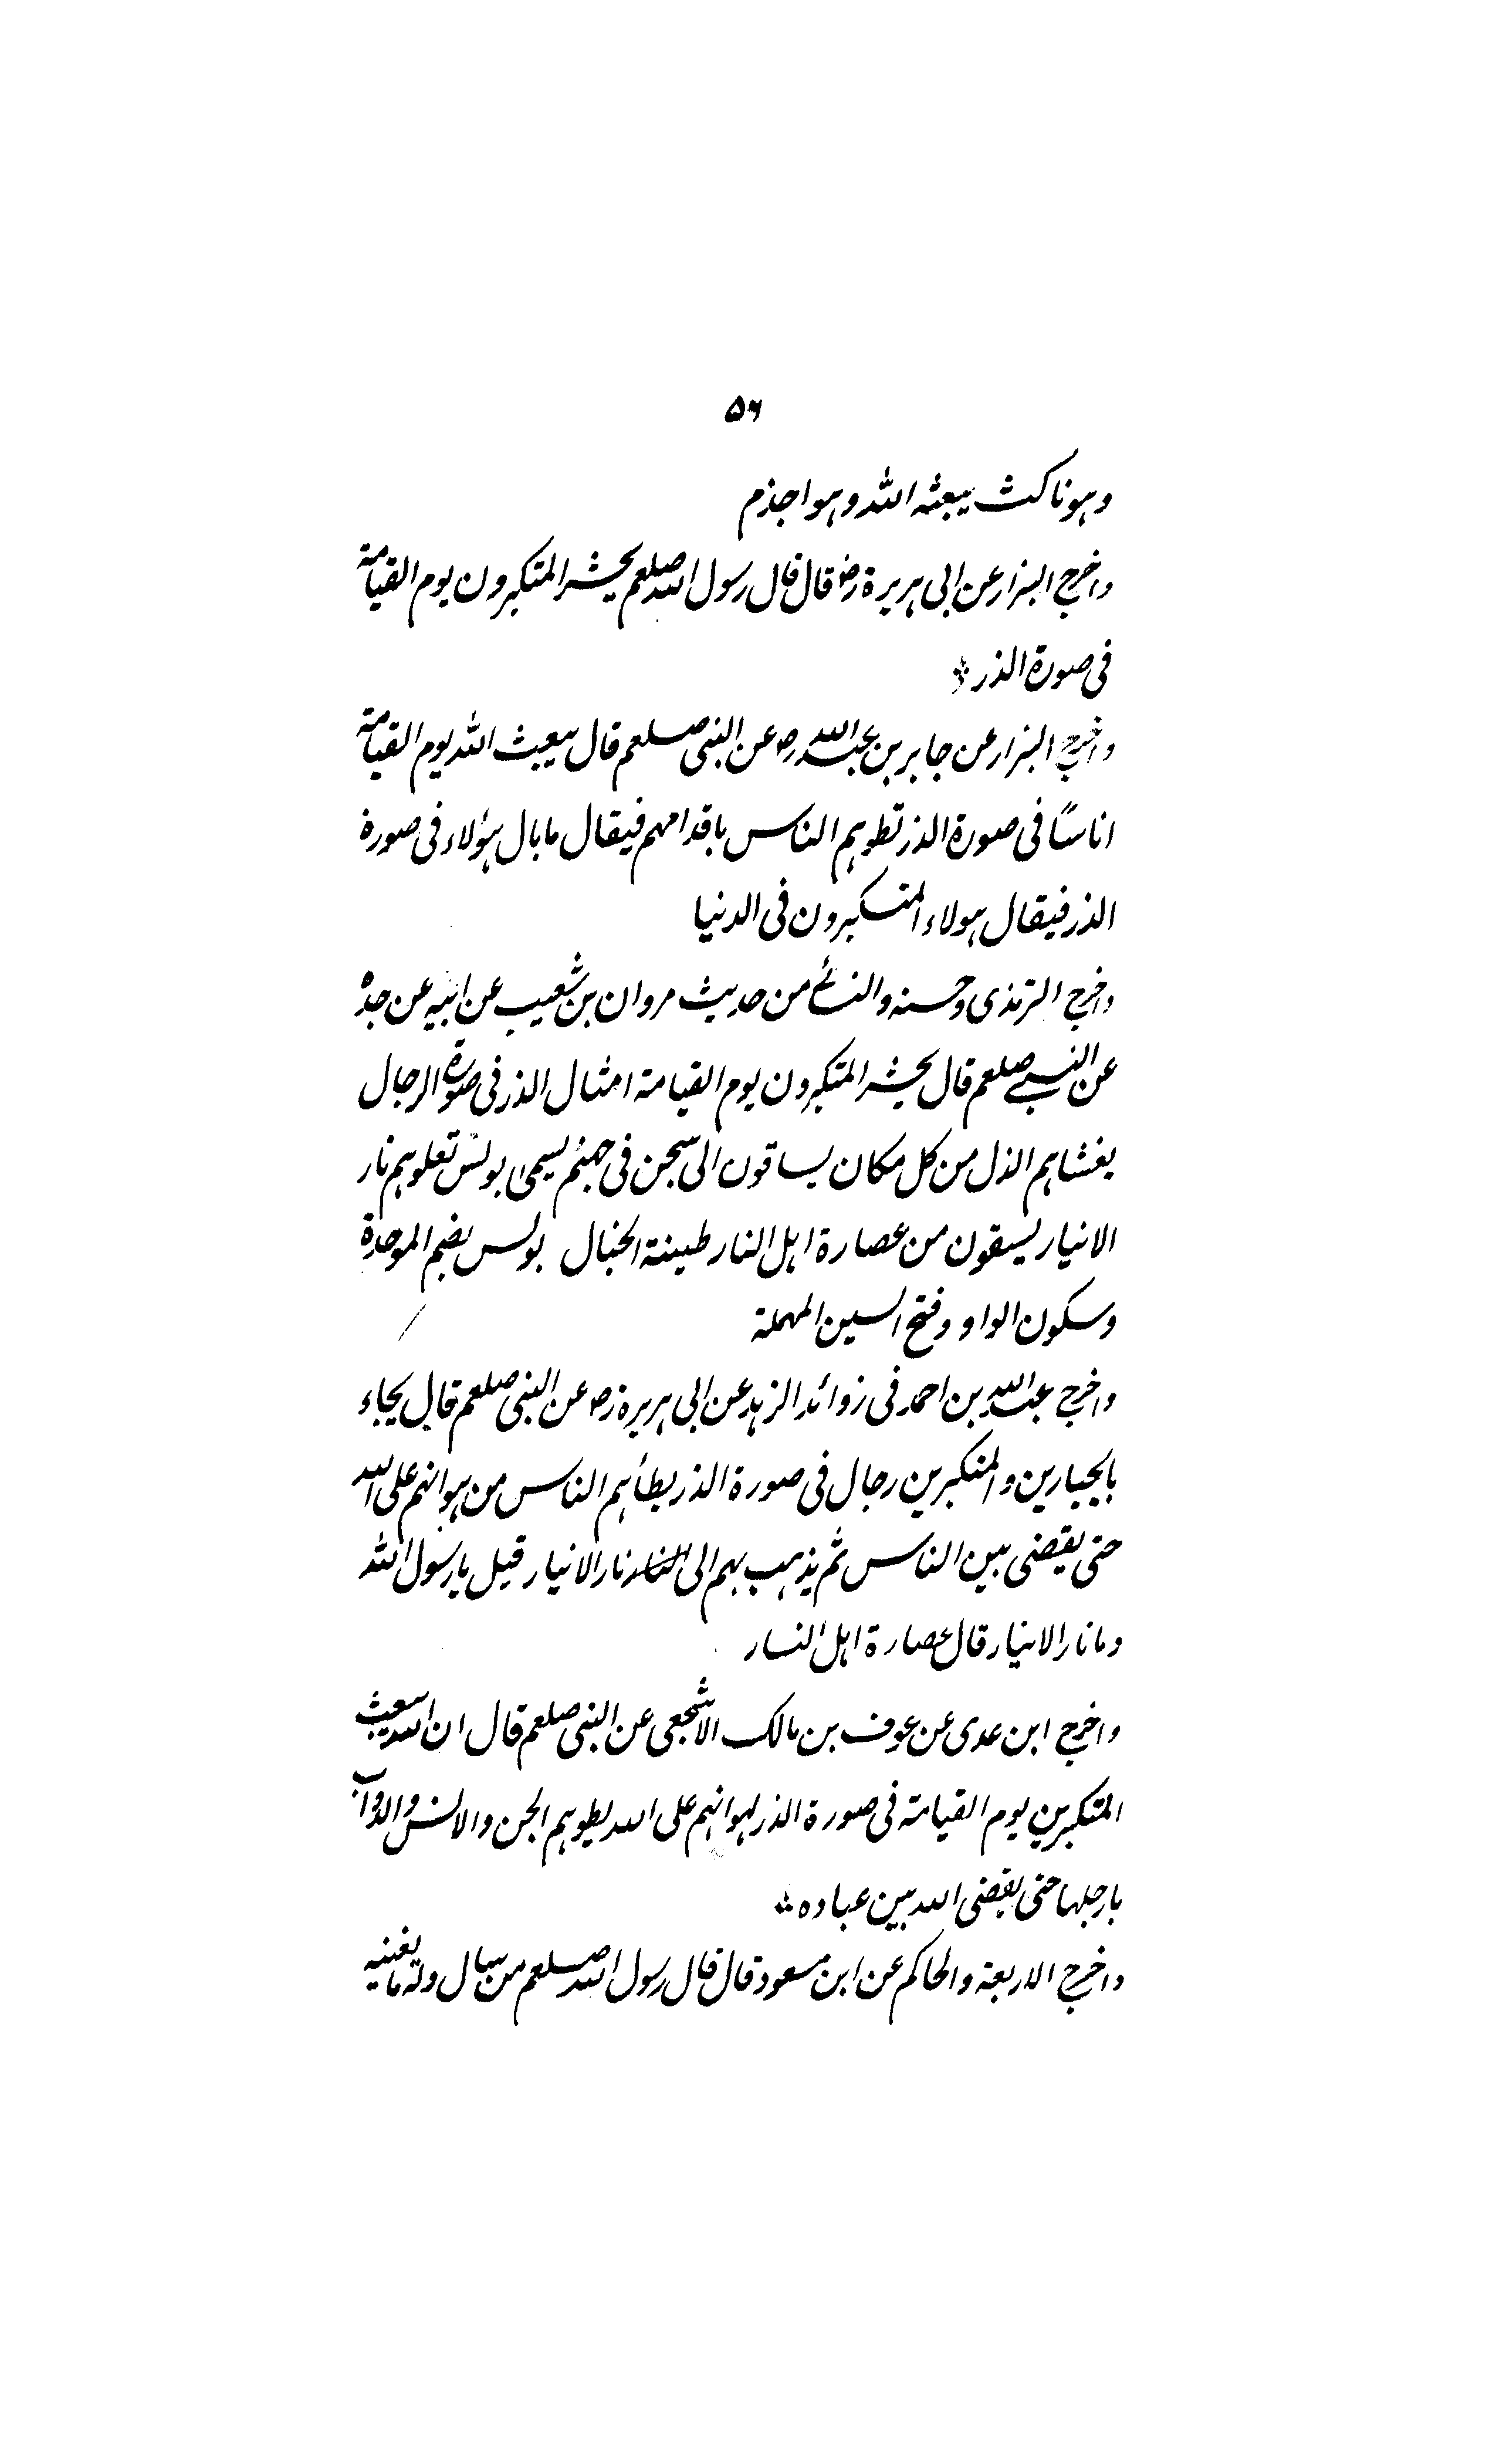 ۵۶
وہوناکث یبعثہ اللہ وہو اجذم
واخرج البزار عن ابی ہریرة رض قال قال رسول اللہ صلعم یحشر المتکبرون یوم القیامة
فی صورة الذر
واخرج البزار عن جابر بن عبد اللہ رض عن النبی صلعم قال یبعث اللہ یوم القیامة
اناسًا فی صورة الذر تطوہم الناس باقدامہم فیقال ما بال ہؤلاء فی صورة
الذر فیقال ہولاء المتکبرون فی الدنیا
واخرج الترمذی وحسنہ والنسائی من حدیث مروان بن شعیب عن ابیہ عن جدہ
عن النبی صلعم قال یحشر المتکبرون یوم القیامة امثال الذر فی صورة الرجال
یغشاہم الذل من کل مکان یساقون الی سجن فی جہنم یسمی بولس تعلوہم نار
الانیار یسقون من عصارة اہل النار طینة الخبال بولس بضم الموحدة
وسکون الواو وفتح السین المہملة
واخرج عبد اللہ بن احمد فی زوائد الزہد عن ابی ہریرة رض عن النبی صلعم قال یجاء
بالجبارین والمتکبرین رجال فی صورة الذر یطأہم الناس من ہوانہم علی اللہ
حتی یقضی بین الناس ثم یذہب بہم الی نار الانیار قیل یا رسول اللہ
وما نار الانیار قال عصارة اہل النار
واخرج ابن عدی عن عوف بن مالک الاشجعی عن النبی صلعم قال ان اللہ یبعث
المتکبرین یوم القیامة فی صورة الذر لہوانہم علی اللہ یطوہم الجن والانس والدواب
بارجلہا حتی یقضی اللہ بین عبادہ
واخرج الاربعة والحاکم عن ابن مسعود قال قال رسول اللہ صلعم من سال ولہ ما یغنیہ